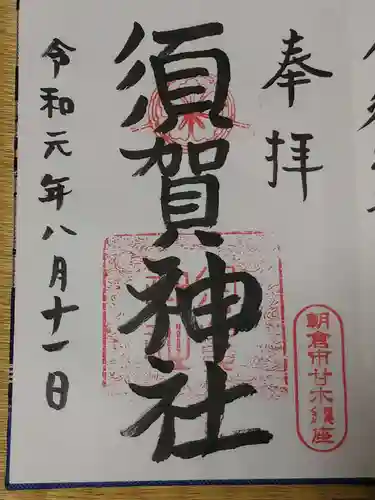 奉拝
須賀神社
令和元年八月十一日
朝倉市甘木鎮座